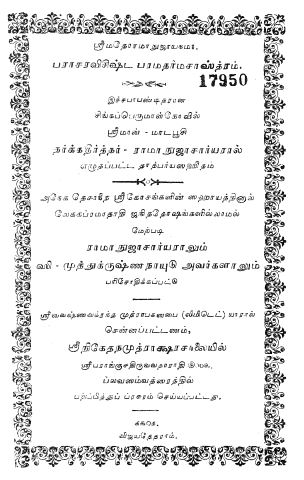 ஸ்ரீமதேராமாநுஜாயநம:
பராசரவிசிஷ்ட பரமதர்மசாஸ்த்ரம்.
17950
இச்சபாபண்டிதரான
சிங்கப்பெருமாள்கோவில்
ஸ்ரீமான் - மாடபூசி
நர்க்கதிர்த்தர் - ராமாநுஜாசார்யரால்
எழுதப்பட்ட தாத்பர்யஸஹிதம்
அநேக தேசாந்த ஸ்ரீகோசங்களின் ஸஹாயத்தினால்
லேககப்ரமாதாதி ஜநிததோஷங்களில்லாமல்
மேற்படி
ராமாநுஜாசார்யராலும்
வி - முத்துக்ருஷ்ணநாயுடு அவர்களாலும்
பரிசோதிக்கப்பட்டு
ஸ்ரீவைஷ்ணவக்ரந்த முத்ராபகஸபை (லிமிடெட்) யாரால்
சென்னபட்டணம்,
ஸ்ரீநிகேதநமுத்ராக்ஷரசாலையில்
ஸ்ரீபராங்குசதிருவவதாராதி
ப்லவஸம்வத்ஸரத்தில்
பதிப்பித்துப் ப்ரசுரம் செய்யப்பட்டது.
விஜயதேதராம்.